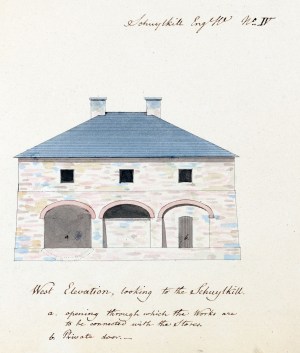 Schuylkill Eng. Ho. No. IV
a
b
West Elevation, looking to the Schuylkill.
a. opening through which the Works are
to be connected with the Stores.
b. Private door.